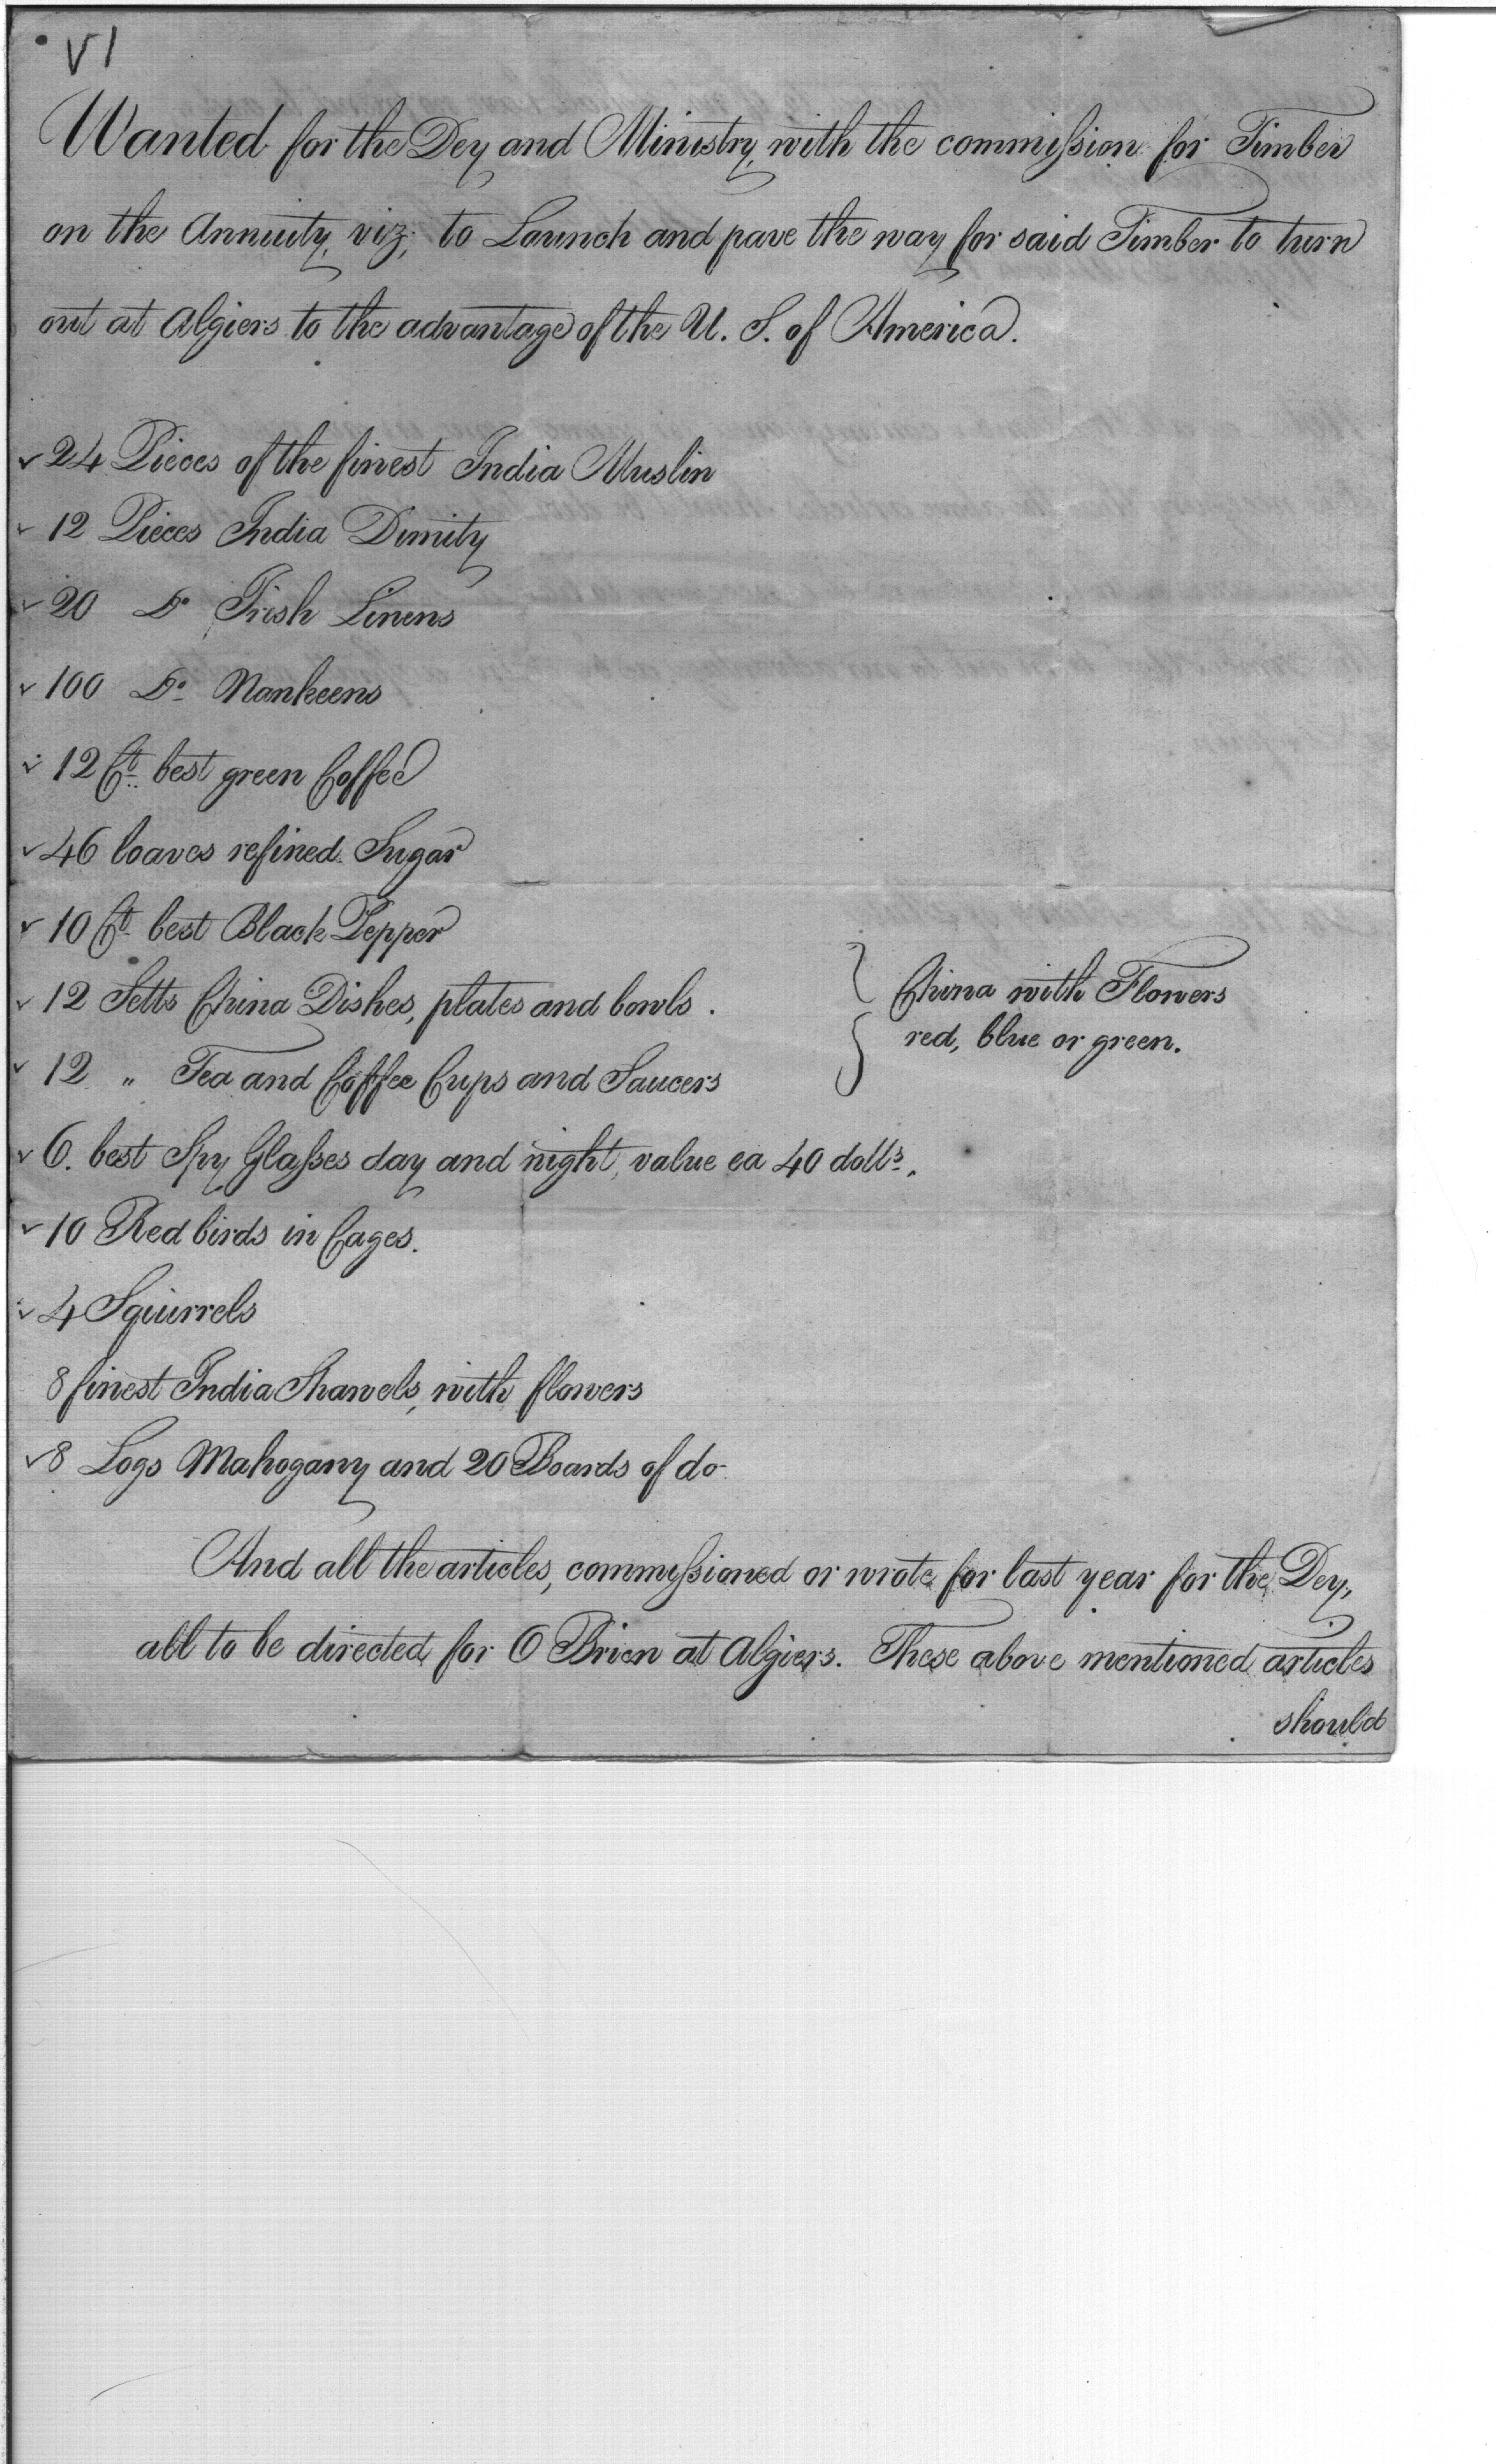 VI
Wanted for the Dey and Ministry, with the commission for Timber
on the Annuity, viz; to Launch and pave the way for said Timber to turn
out at Algiers to the advantage of the U. S. of America.
✓ 24 Pieces of the finest India Muslin
✓ 12 Pieces India Dimity
✓ 20 Do Irish Linens
✓ 100 Do Nankeens
✓ 12 Ct best green Coffee
✓ 46 loaves refined Sugar
✓ 10 Ct best Black Pepper
✓ 12 Setts China Dishes, plates and bowls. } China with Flowers
✓ 12 " Tea and Coffee Cups and Saucers } red, blue or green.
✓ 6. best Spy Glasses day and night, value ea 40 dolls.
✓ 10 Red birds in Cages.
✓ 4 Squirrels
8 finest India Shawels, with flowers
✓ 8 Logs Mahogany and 20 Boards of do
And all the articles, commissioned or wrote for last year for the Dey,
all to be directed for O Brien at Algiers. These above mentioned articles
should